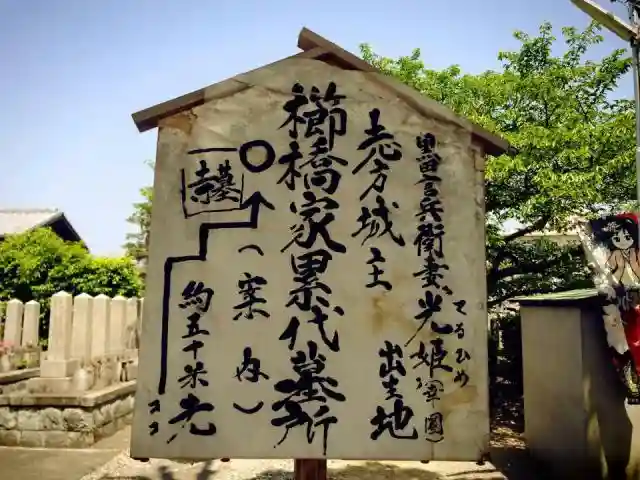 黒田官兵衛妻光姫(幸圓)
てるひめ
志方城主 出生地
櫛橋家累代墓所
(案内)
約五十米先
墓寺
ココ